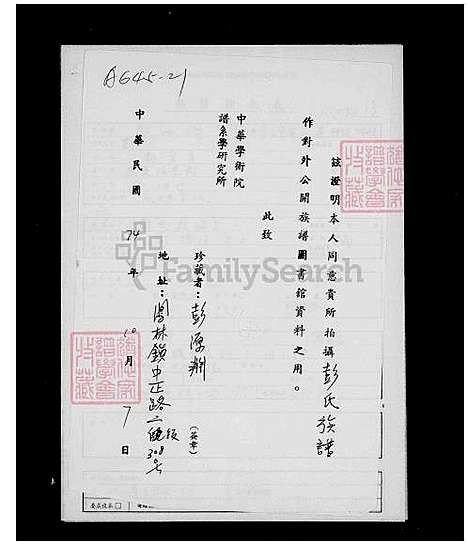 A645-21
茲證明本人同意貴所拍攝彭氏族譜
作對外公開族譜圖書館資料之用。
此致
中華學術院
譜系學研究所
珍藏者：彭源 (簽章)
地址：鎮中正路二段308号
中華民國74年10月7日
譜學會
譜學會
FamilySearch